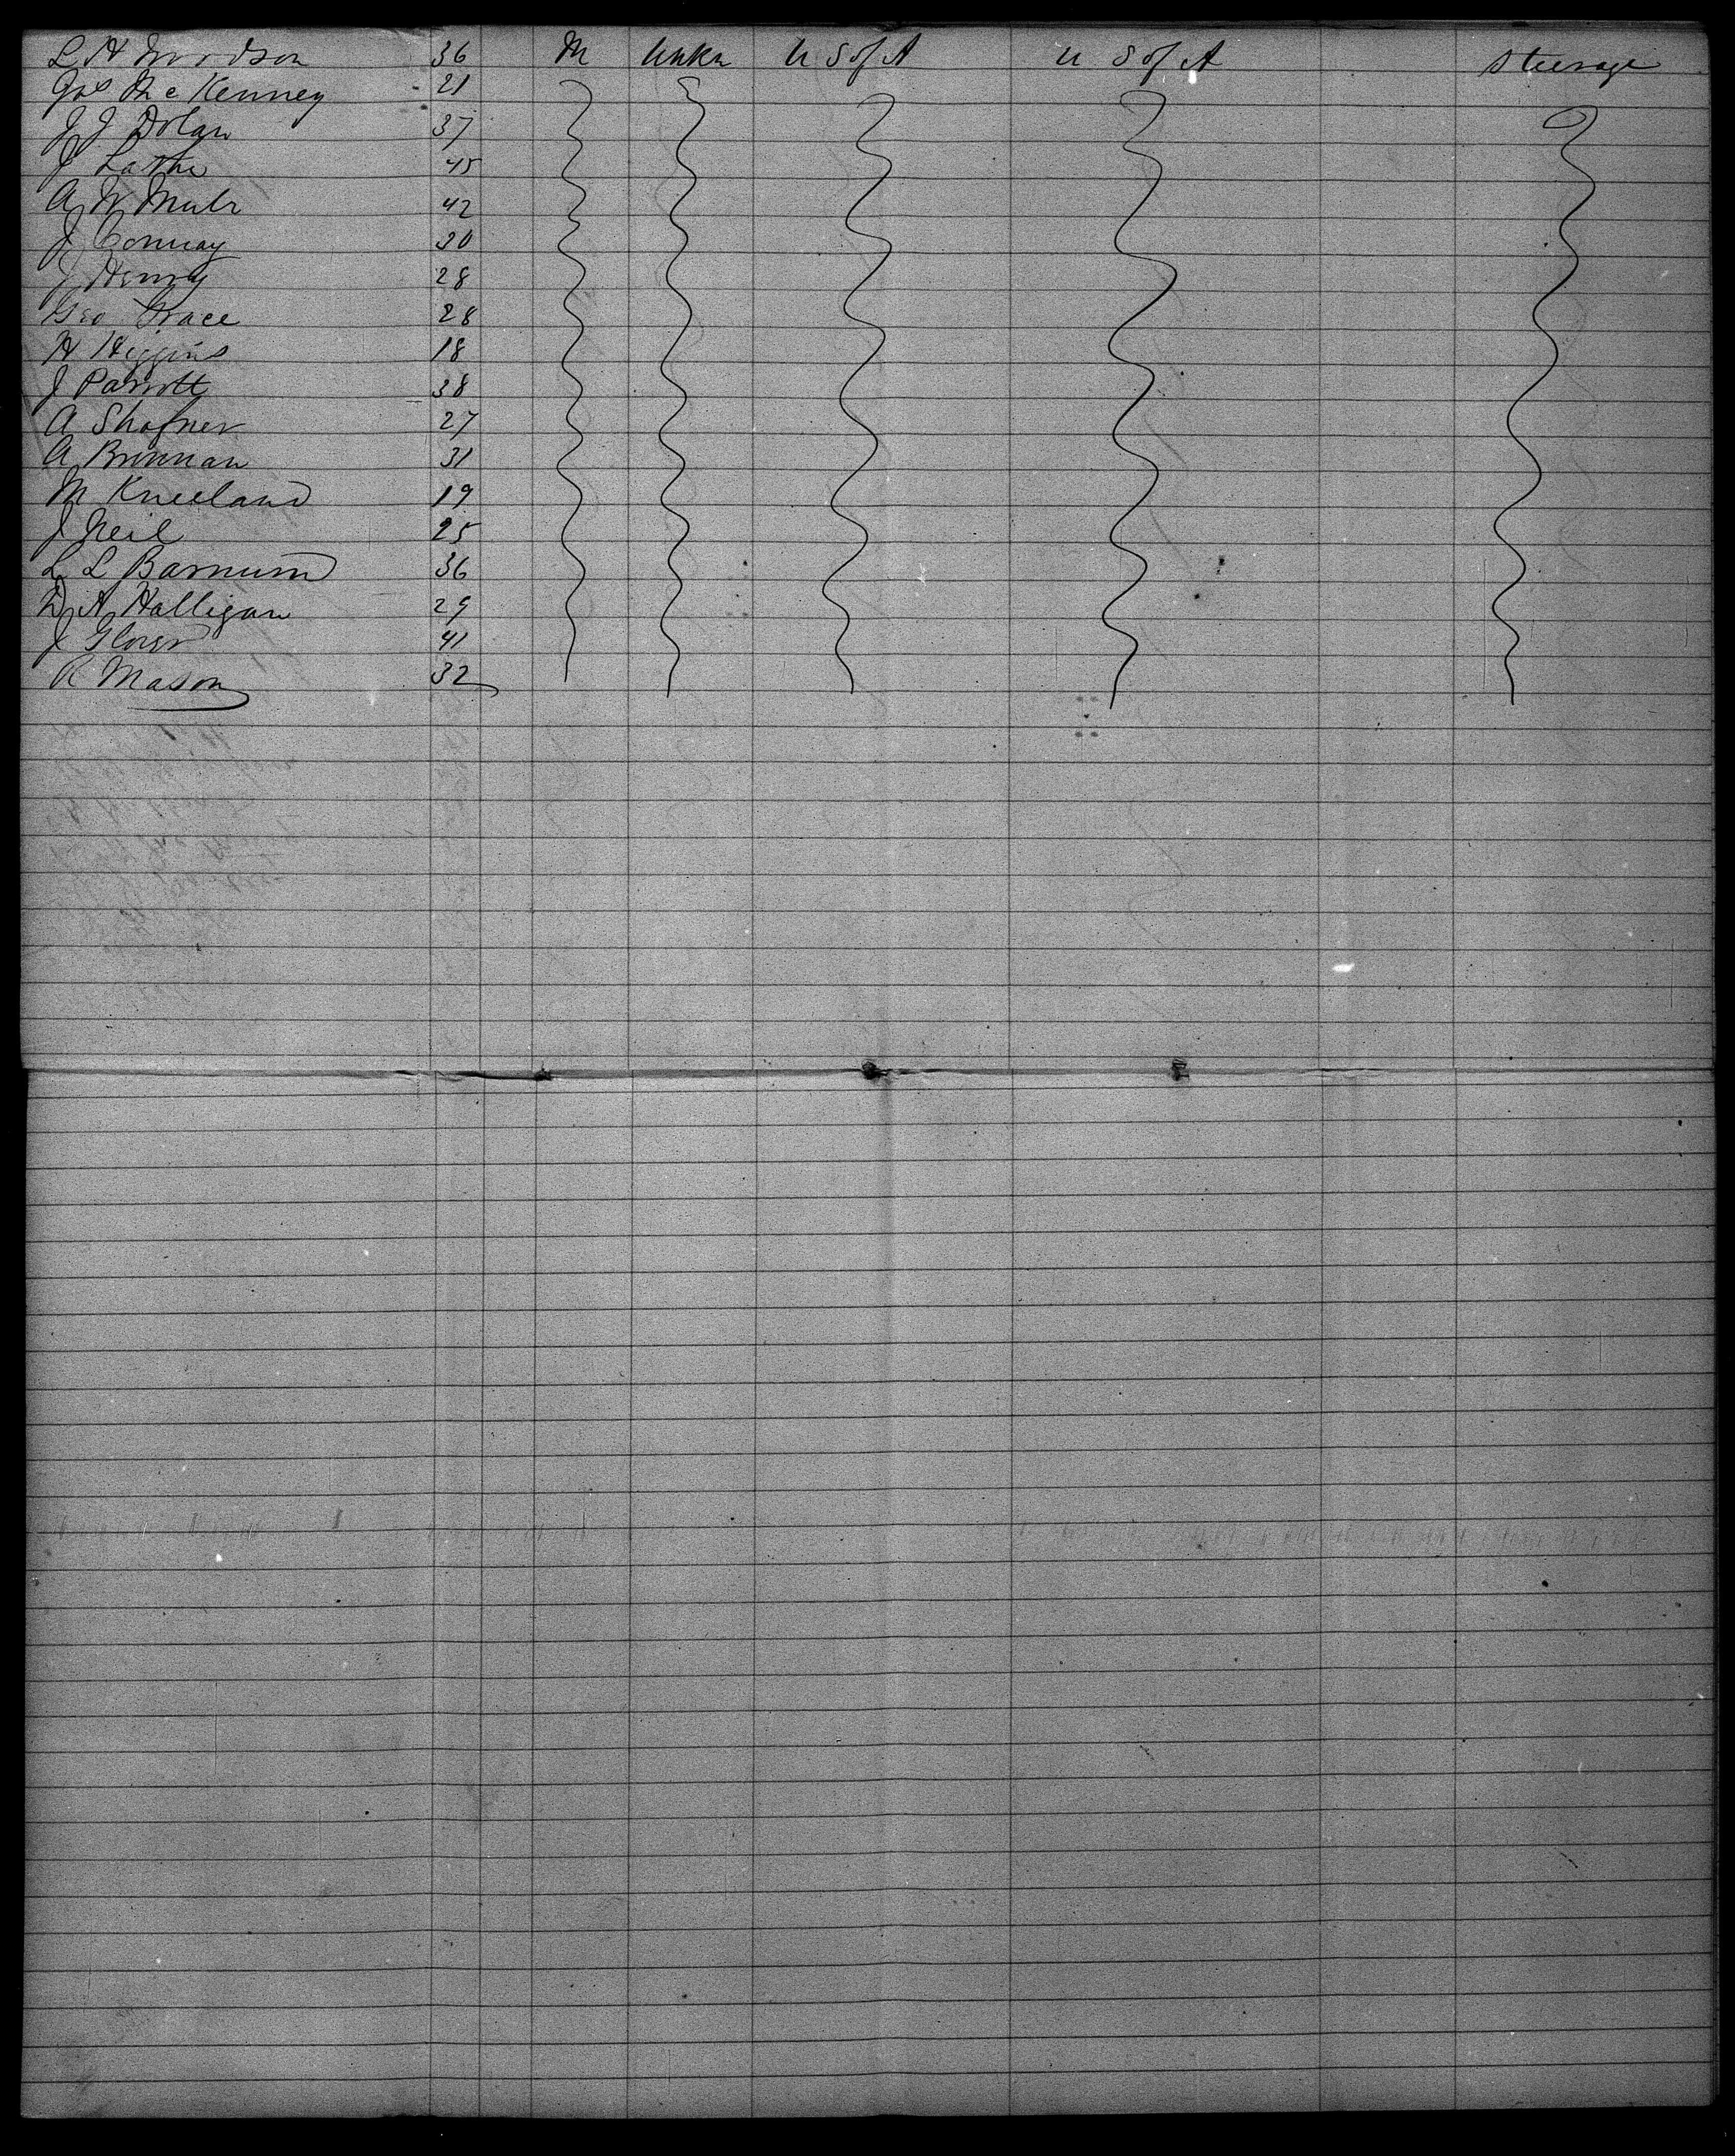 L H Woodson 36 M Unkn U S of A U S of A Steerage
Jos Mc Kenney 21
J J Dolan 37
J 45
A W Muir 42
J Conway 30
J Henry 28
Geo Grace 28
H Higgins 18
J Parrott 38
A Shafner 27
A Brennan 31
M Kneeland 19
J Neil 25
L L Barnum 36
D A Halligan 29
J Glover 41
R Mason 32